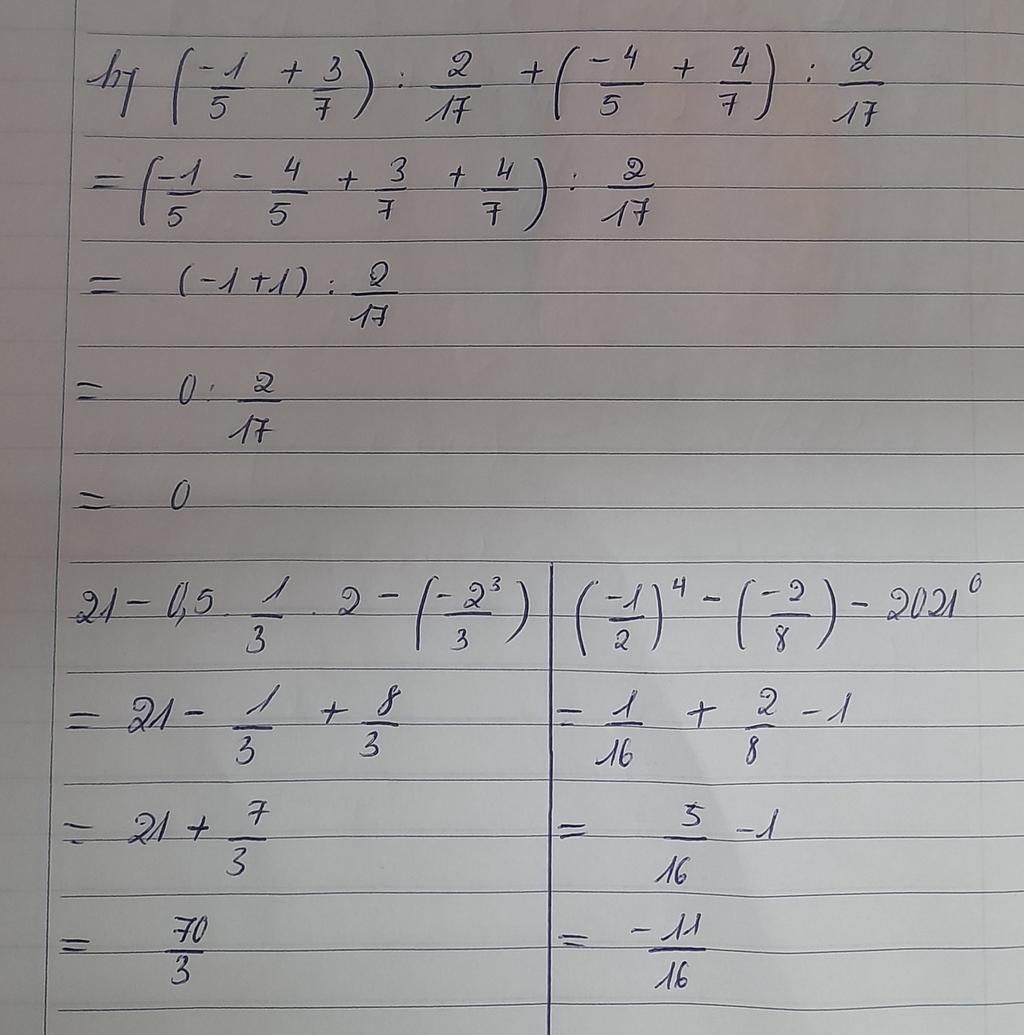 b) (-1/5 + 3/7) : 2/17 + (-4/5 + 4/7) : 2/17
= (-1/5 - 4/5 + 3/7 + 4/7) : 2/17
= (-1+1) : 2/17
= 0 : 2/17
= 0
21 - 0,5 . 1/3 . 2 - (-2³/3)
= 21 - 1/3 + 8/3
= 21 + 7/3
= 70/3
(-1/2)⁴ - (-2/8) - 2021⁰
= 1/16 + 2/8 - 1
= 5/16 - 1
= -11/16